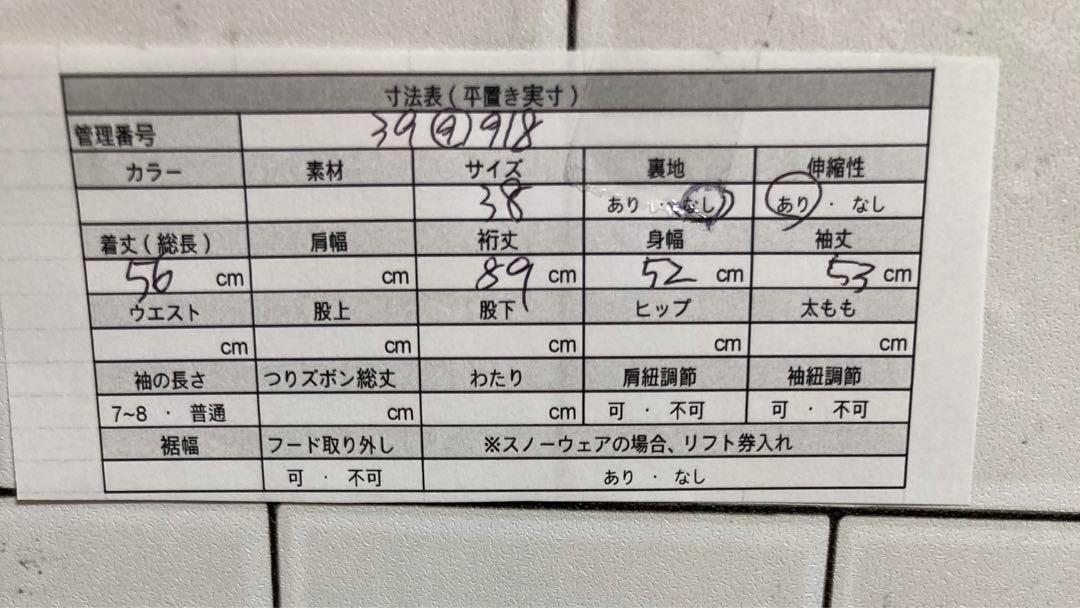 寸法表(平置き実寸)
管理番号 39(a)918
カラー 素材 サイズ 裏地 伸縮性
38 あり・なし あり・なし
着丈(総長) 肩幅 裄丈 身幅 袖丈
56 cm cm 89 cm 52 cm 53 cm
ウエスト 股上 股下 ヒップ 太もも
cm cm cm cm cm
袖の長さ つりズボン総丈 わたり 肩紐調節 袖紐調節
7~8・普通 cm cm 可・不可 可・不可
裾幅 フード取り外し ※スノーウェアの場合、リフト券入れ
可・不可 あり・なし